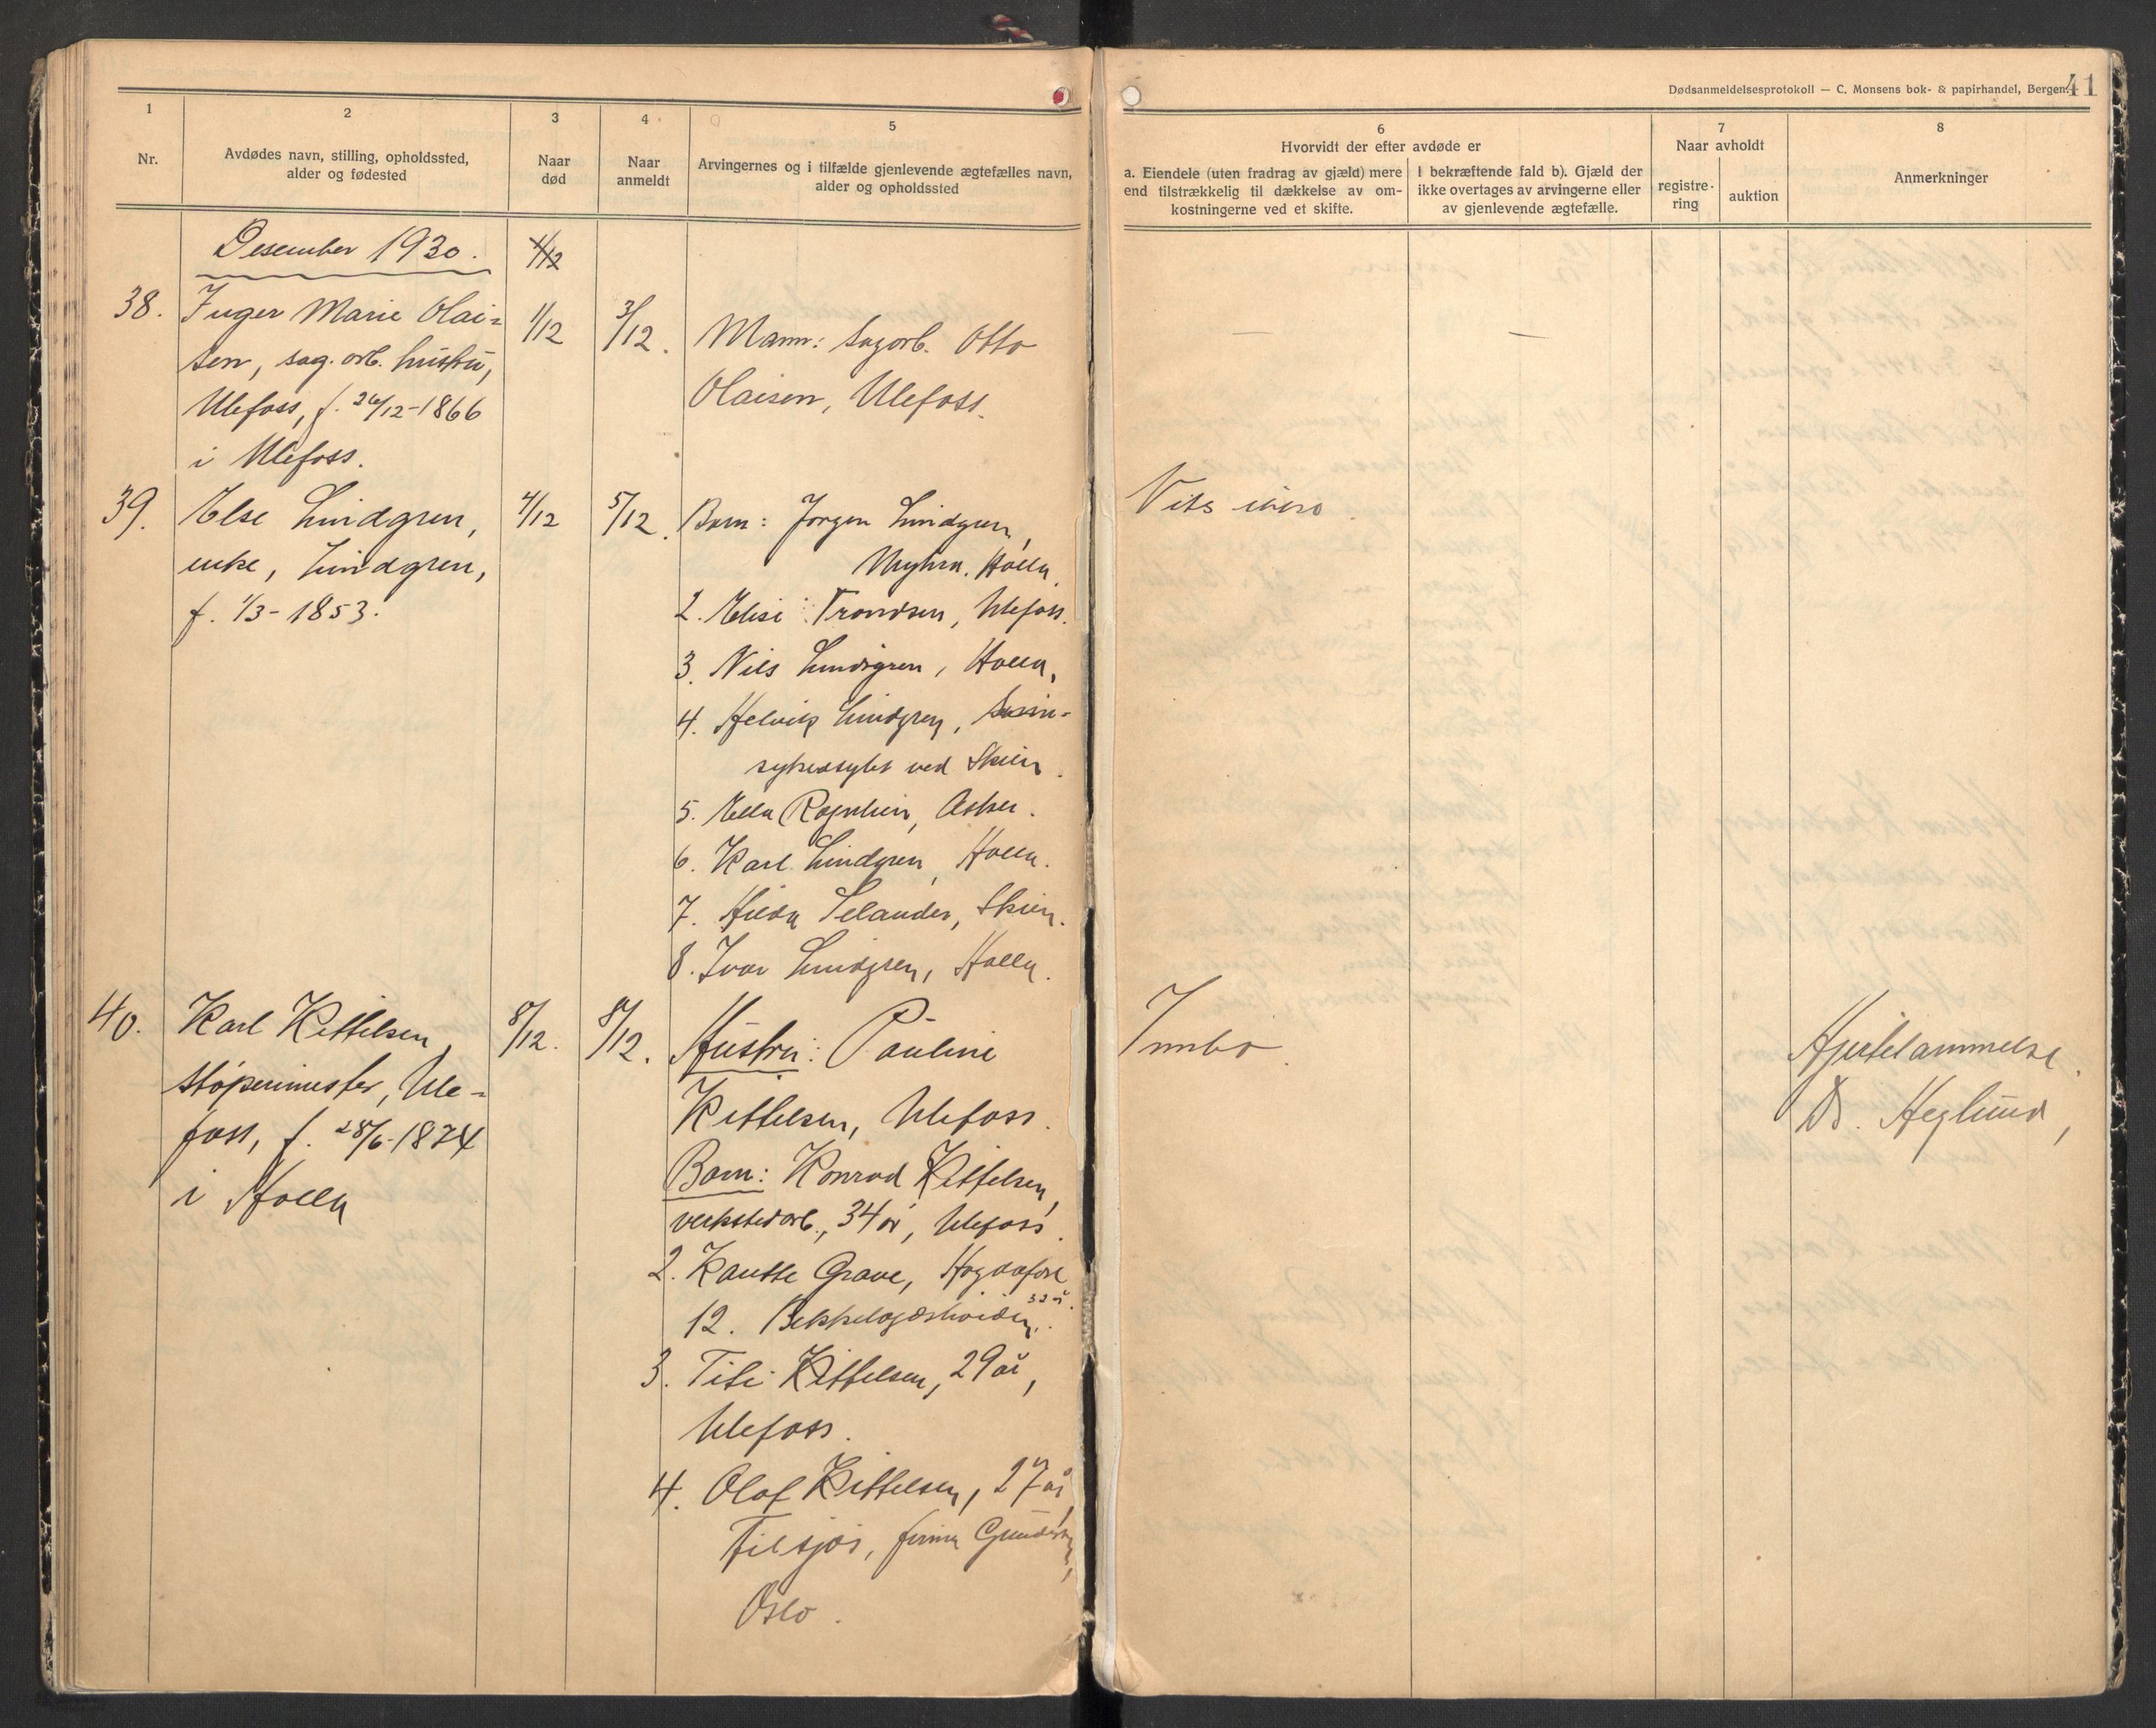 Dødsanmeldelsesprotokoll — C. Monsens bok- & papirhandel, Bergen.
41
1
Nr.
2
Avdødes navn, stilling, opholdssted,
alder og fødested
3
Naar
død
4
Naar
anmeldt
5
Arvingernes og i tilfælde gjenlevende ægtefælles navn,
alder og opholdssted
6
Hvorvidt der efter avdøde er
a. Eiendele (uten fradrag av gjæld) mere
end tilstrækkelig til dækkelse av om-
kostningerne ved et skifte.
I bekræftende fald b). Gjæld der
ikke overtages av arvingerne eller
av gjenlevende ægtefælle.
7
Naar avholdt
registre-
ring
auktion
8
Anmerkninger
Desember 1930.
38.
Inger Marie Olai-
sen, sag.arb. hustru,
Ulefoss, f. 26/12-1866
i Ulefoss.
1/12
3/12.
Mann: Sagarb. Otto
Olaisen, Ulefoss.
—
—
39.
Else Lindgren,
enke, Lindgren,
f. 1/3-1853.
4/12
5/12.
Barn: Jørgen Lindgren,
Myhra. Holla.
2. Elise Trondsen, Ulefoss.
3. Nils Lindgren, Holla.
4. Helvig Lindgren, Sinn-
sykeasylet ved Skien.
5. Ella Rognlien, Asker.
6. Karl Lindgren, Holla.
7. Hilda Selander, Skien.
8. Ivar Lindgren, Holla.
Vites ikke
40.
Karl Kittilsen,
støperimester, Ule-
foss, f. 28/6-1874
i Holla
8/12.
8/12.
Hustru: Pauline
Kittelsen, Ulefoss.
Barn: Konrad Kittelsen,
verkstedarb., 34 år, Ulefoss.
2. Grave,
12. 32 år.
3. Kittelsen, 29 år,
Ulefoss.
4. Olaf Kittelsen, 27 år,
firma
Oslo.
Innbo.
Hjertelammelse.
Dr. Høglund,